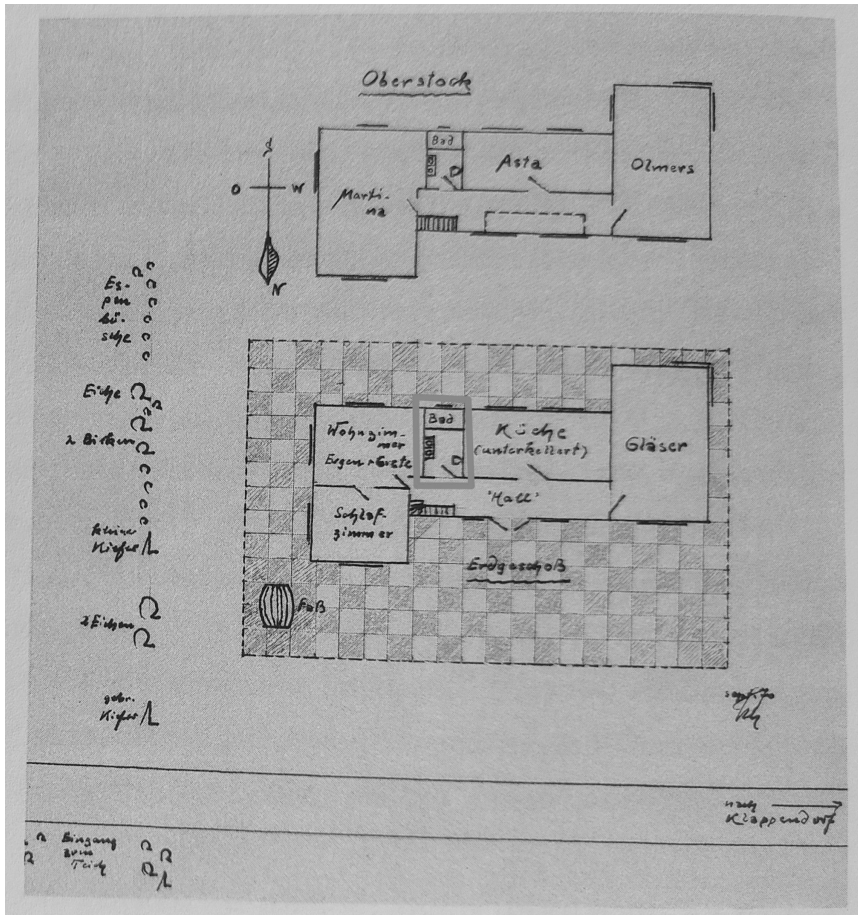 Oberstock
S
O
W
N
Bad
Asta
Olmers
Marti-
na
Es-
pen
bü-
sche
Eiche
2 Birken
kleine
Kiefer
2 Eichen
gebr.
Kiefer
Wohnzim-
mer
Eugen + Grete
Bad
Küche
(unterkellert)
Gläser
'Hall'
Schlaf-
zimmer
Erdgeschoß
Faß
nach
Klappendorf
Eingang
zum
Teich